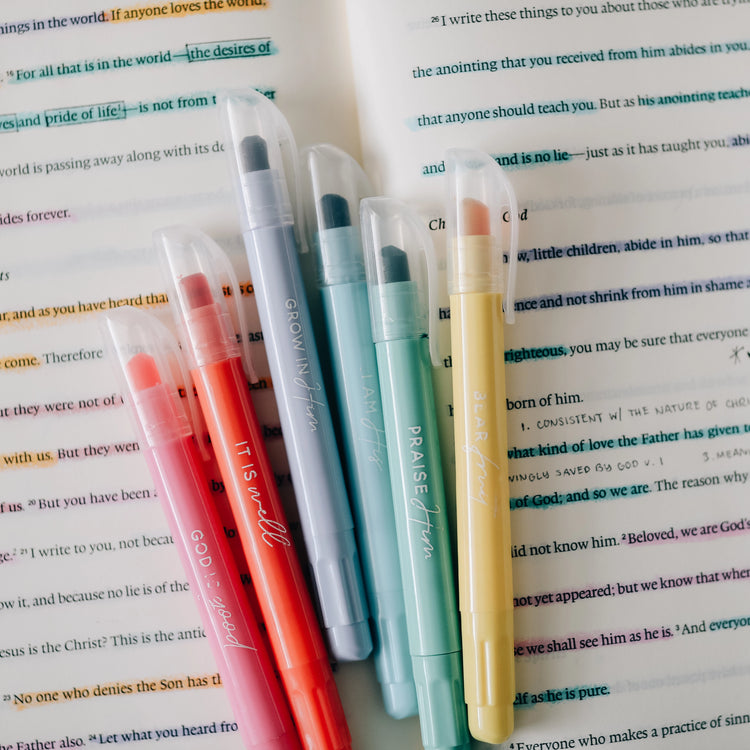 ings in the world. If anyone loves the world,
¹⁶For all that is in the world—the desires of
and pride of life—is not from
world is passing away along with its
ides forever.
and as you have heard
come. Therefore
they were not of
with us. But they went
of us. ²⁰But you have been
²¹I write to you, not
w it, and because no lie is of the
esus is the Christ? This is the
²³No one who denies the Son has
the Father also. ²⁴Let what you heard from
GOD IS good
IT IS well
GROW IN Him
I AM His
PRAISE Him
BEAR fruit
²⁶I write these things to you about those who are
the anointing that you received from him abides in you,
that anyone should teach you. But as his anointing
and is no lie—just as it has taught you,
God
little children, abide in him, so that
and not shrink from him in shame
righteous, you may be sure that everyone
born of him.
1. CONSISTENT W/ THE NATURE OF
what kind of love the Father has given
SAVED BY GOD V. 1
3.
of God; and so we are. The reason why
did not know him. ²Beloved, we are God's
not yet appeared; but we know that when
we shall see him as he is. ³And
as he is pure.
⁴Everyone who makes a practice of